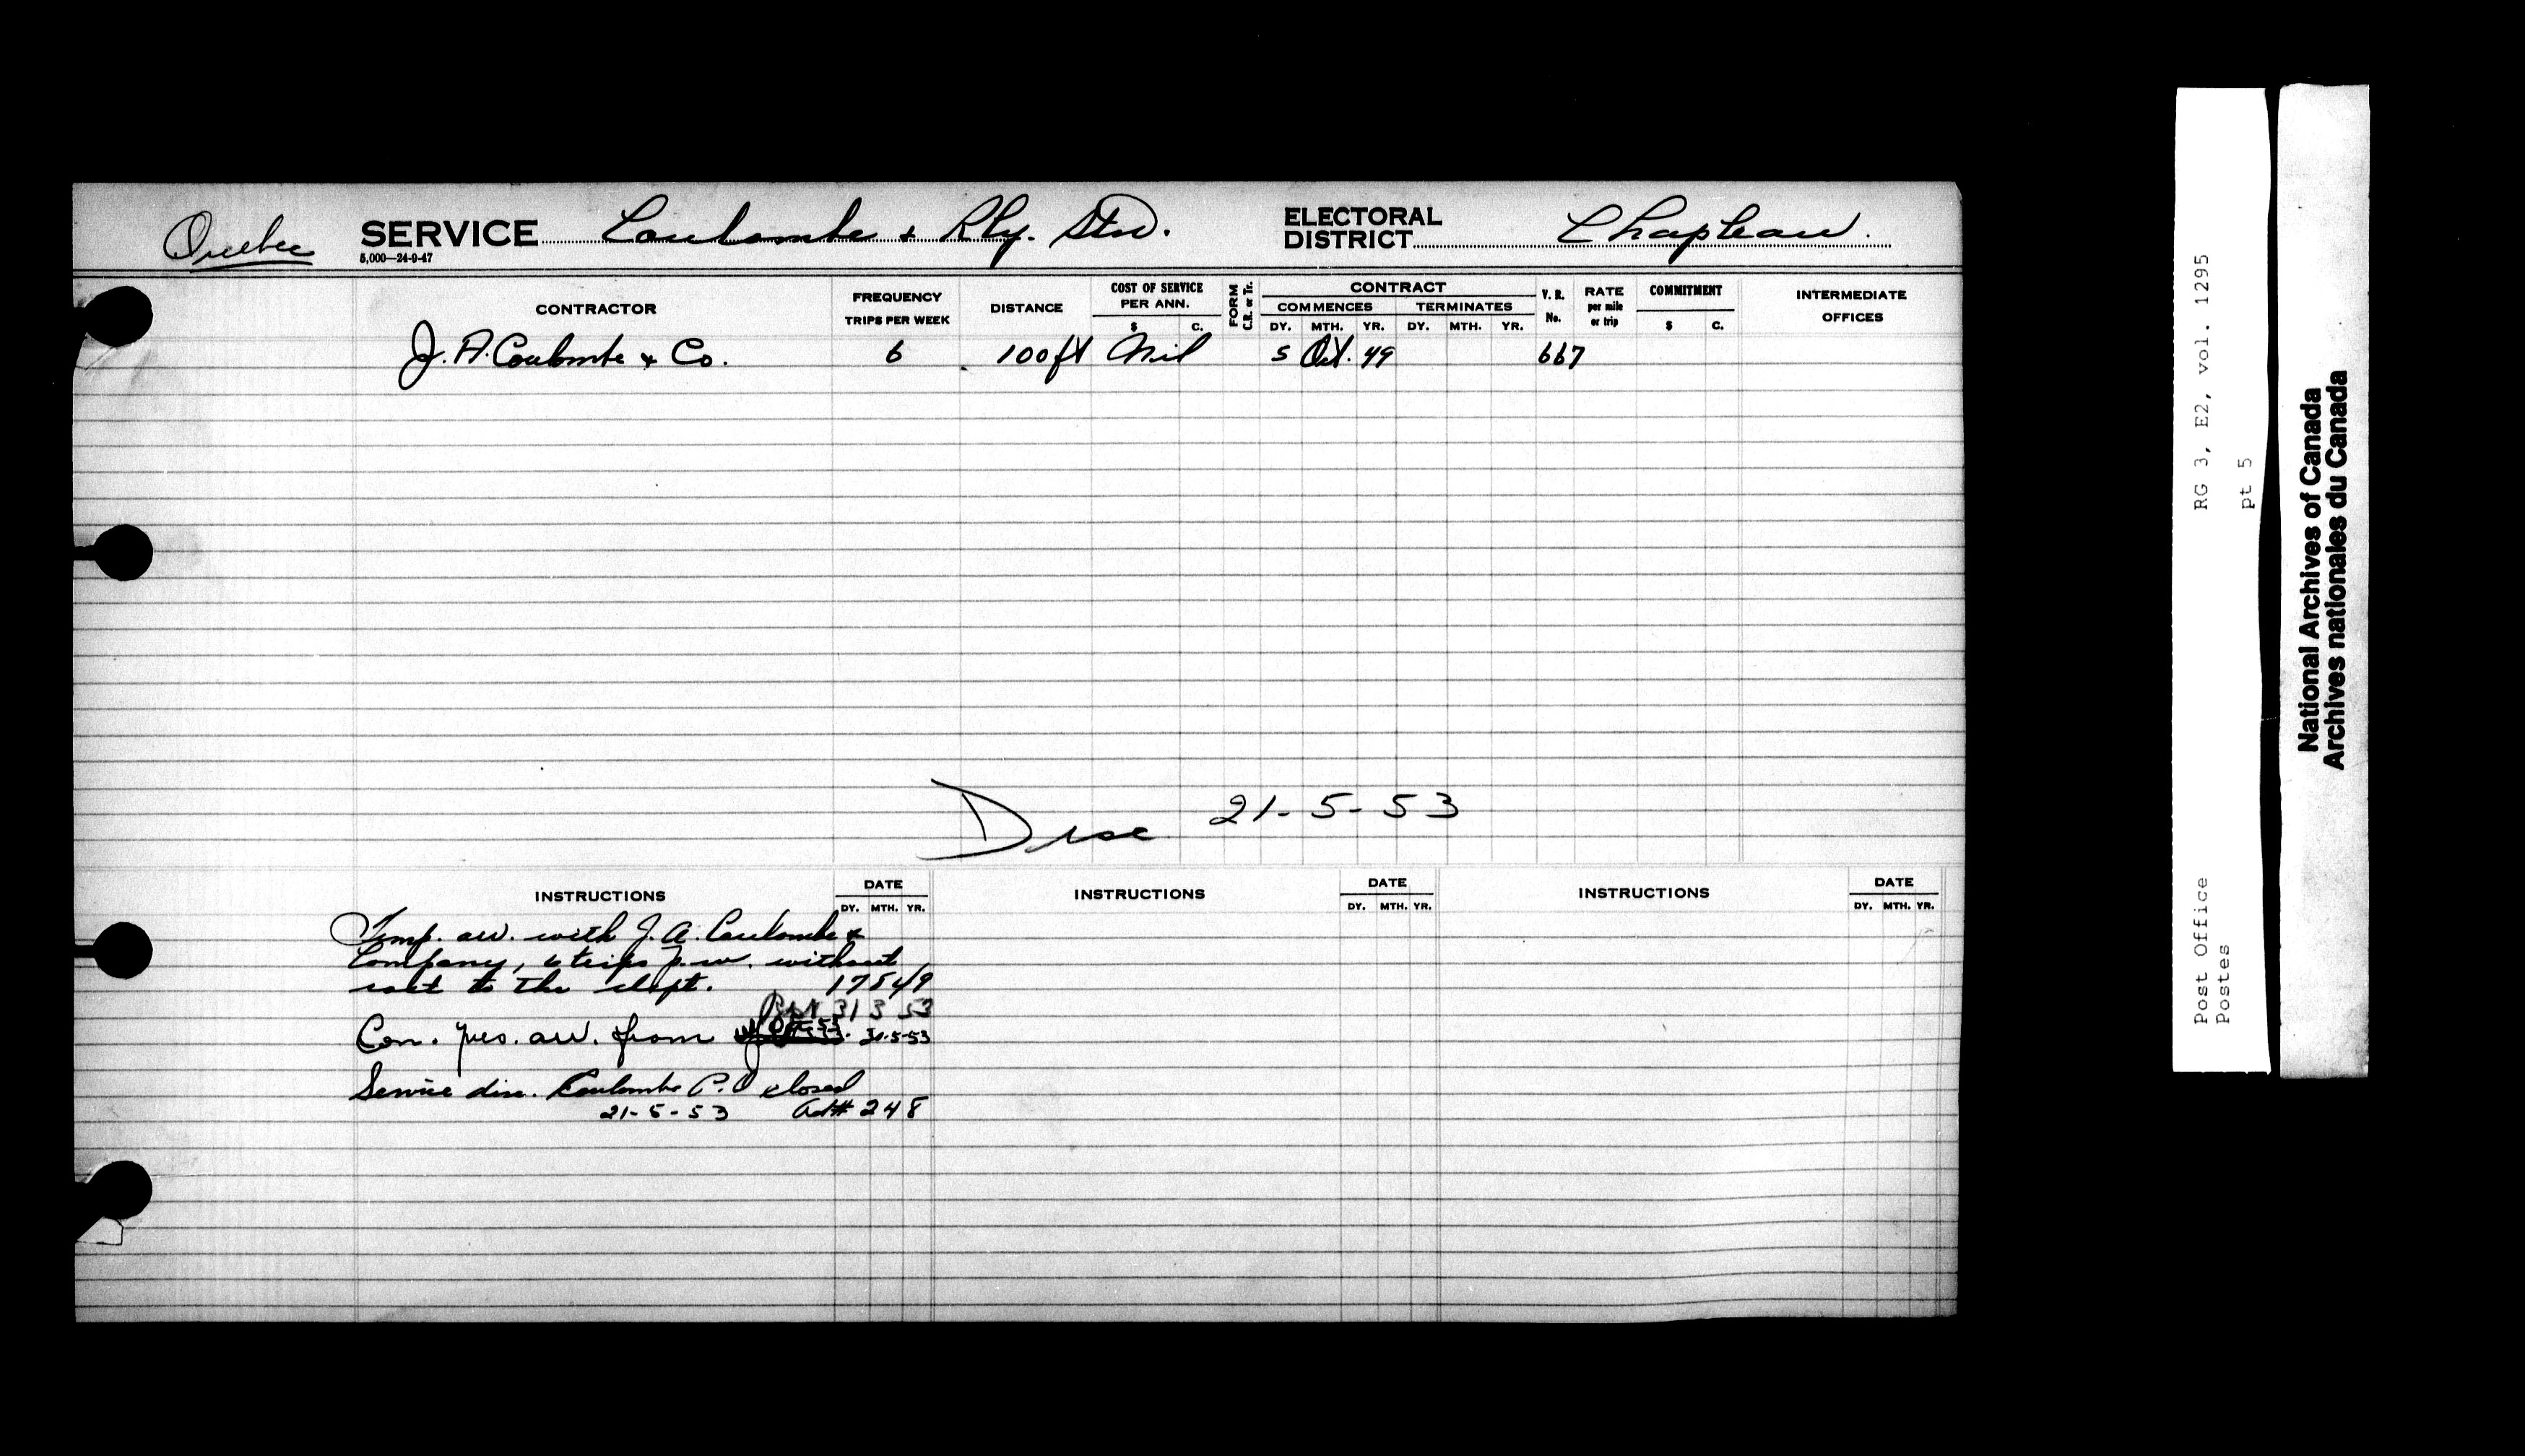 Quebec SERVICE Coulombe & Rly. Stn. ELECTORAL DISTRICT Chapleau.
5,000—24-9-47
CONTRACTOR FREQUENCY TRIPS PER WEEK DISTANCE COST OF SERVICE PER ANN. $ C. FORM C.R. or Tr. CONTRACT COMMENCES DY. MTH. YR. TERMINATES DY. MTH. YR. V. R. No. RATE per mile or trip COMMITMENT $ C. INTERMEDIATE OFFICES
J. A. Coulombe & Co. 6 100 ft Nil 5 Oct. 49 667
Disc 21-5-53
INSTRUCTIONS DATE DY. MTH. YR. INSTRUCTIONS DATE DY. MTH. YR. INSTRUCTIONS DATE DY. MTH. YR.
Temp. arr. with J. A. Coulombe &
Company, 6 trips p.w. without
cost to the dept. 17 5 49
31 3 53
Con. pres. arr. from 31-5-53
Service disc. Coulombe P.O closed
21-5-53 Act# 248
RG 3, E2, vol. 1295
pt 5
Post Office
Postes
National Archives of Canada
Archives nationales du Canada